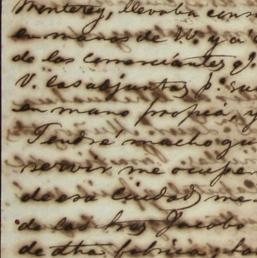 Monterey, llevaba con
en manos de V. y a
de los comerciantes
V. las adjuntas p.
en mano propia, y
Tendré mucho gu
servir me ocupe
de esa ciudad, me
de las tres Jacobo
de dha. fabrica y